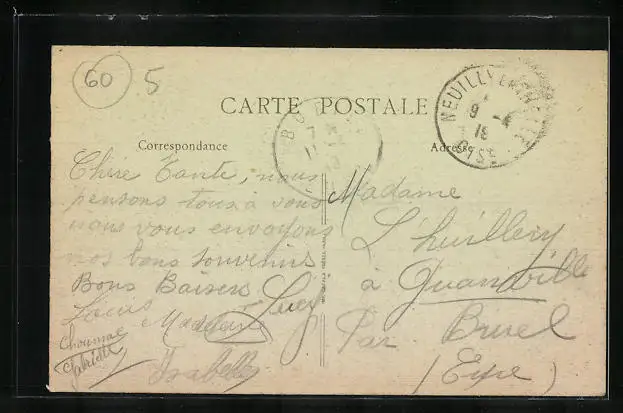 60 5
CARTE POSTALE
Correspondance
Adresse
NEUILLY EN THELLE
9 -4
18
OISE
Chère Tante, nous
pensons tous à vous
nous vous envoyons
nos bons souvenirs
Bons Baisers Lucy
Louis Madeleine
Gabrielle
Isabelle
Madame
L'huillery
à
Par Bueil
(Eure)